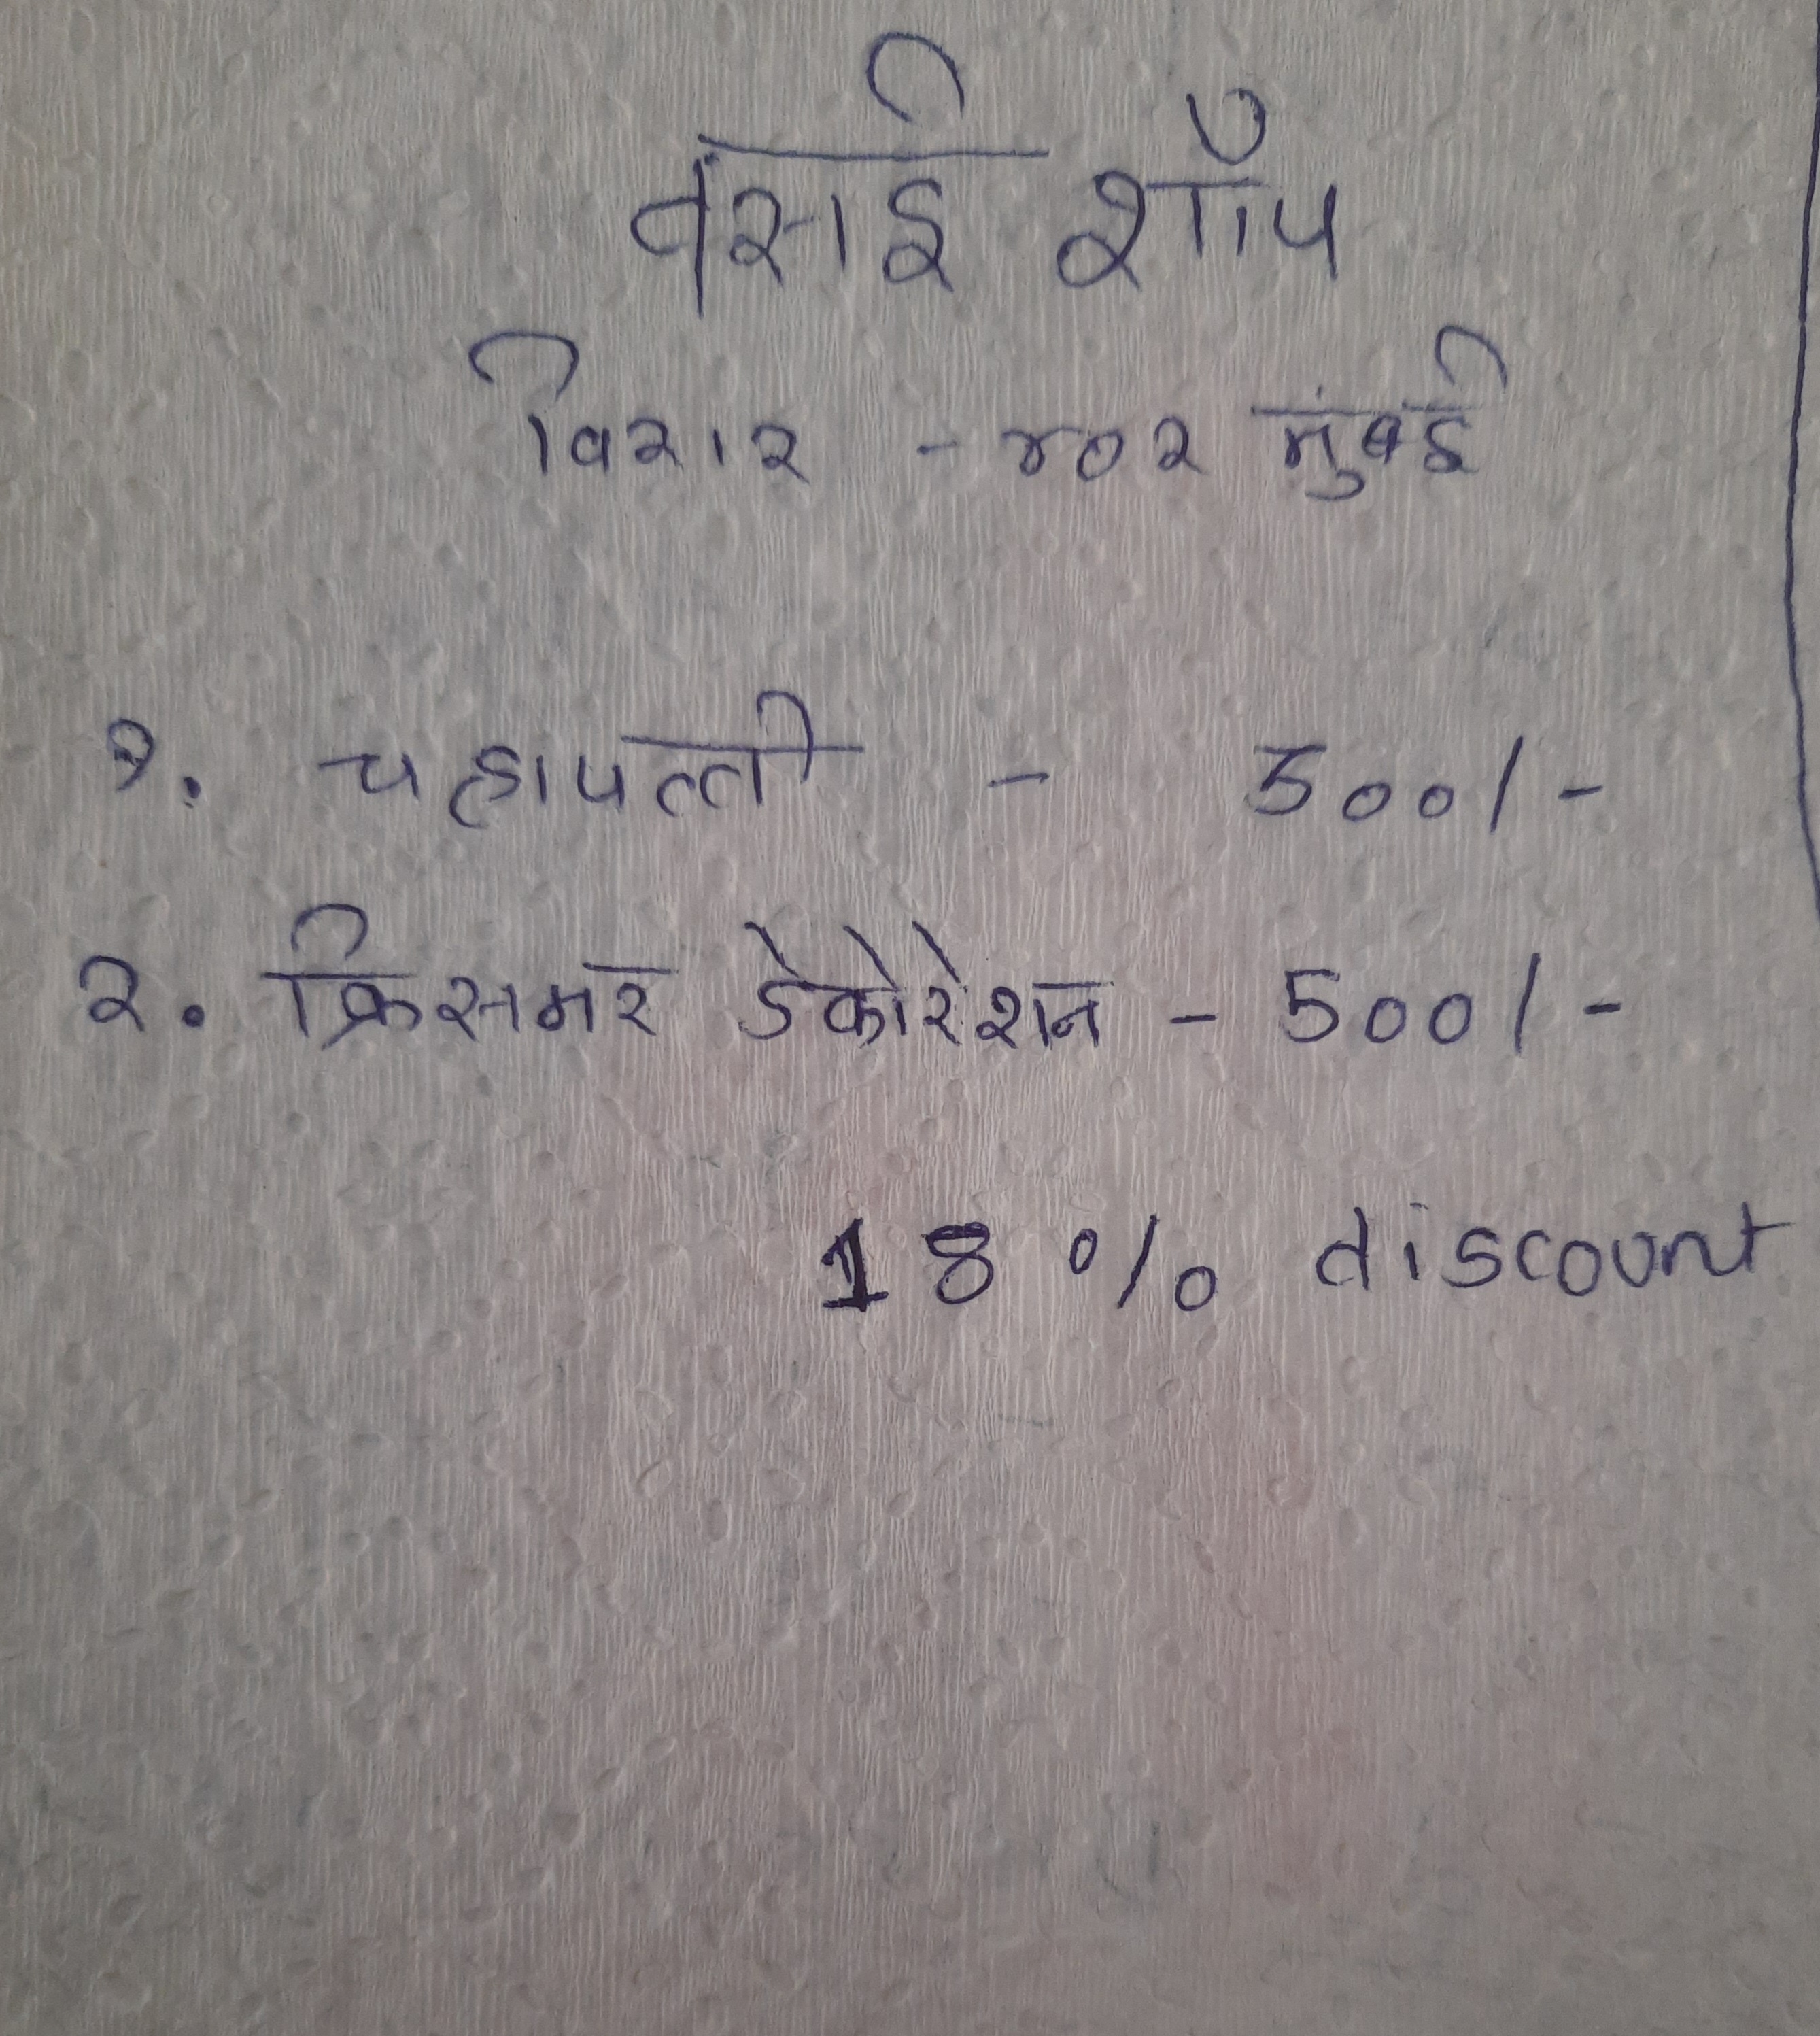 वसाई शॉप
विरार - ४०२ मुंबई
१. चहापत्ती - 500/-
२. क्रिसमर डेकोरेशन - 500/-
18 % discount